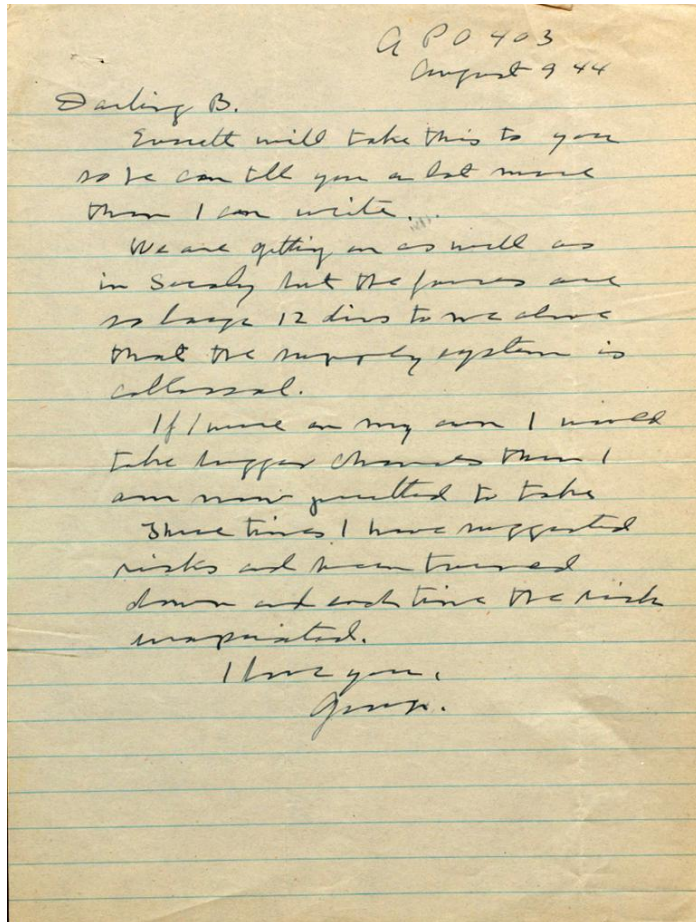 A P O 403
August 9 44
Darling B.
Everett will take this to you
so he can tell you a lot more
than I can write.
We are getting on as well as
in Sicaly but the forces are
so large 12 divs to me alone
that the supply system is
collossal.
If I were on my own I would
take bigger chances than I
am now permitted to take
Three times I have suggested
risks and been turned
down and each time the risk
was
I love you.
George.